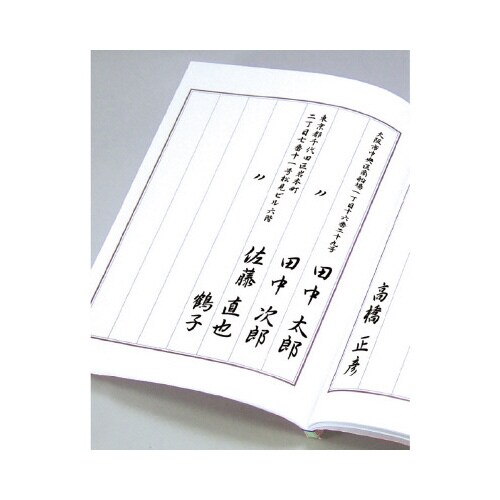 高橋 正彦
大阪市中央区南船場一丁目十六番二十九号
田中 太郎
〃
田中 次郎
東京都千代田区岩本町
二丁目七番十一号松見ビル六階
佐藤 直也
〃
鶴子